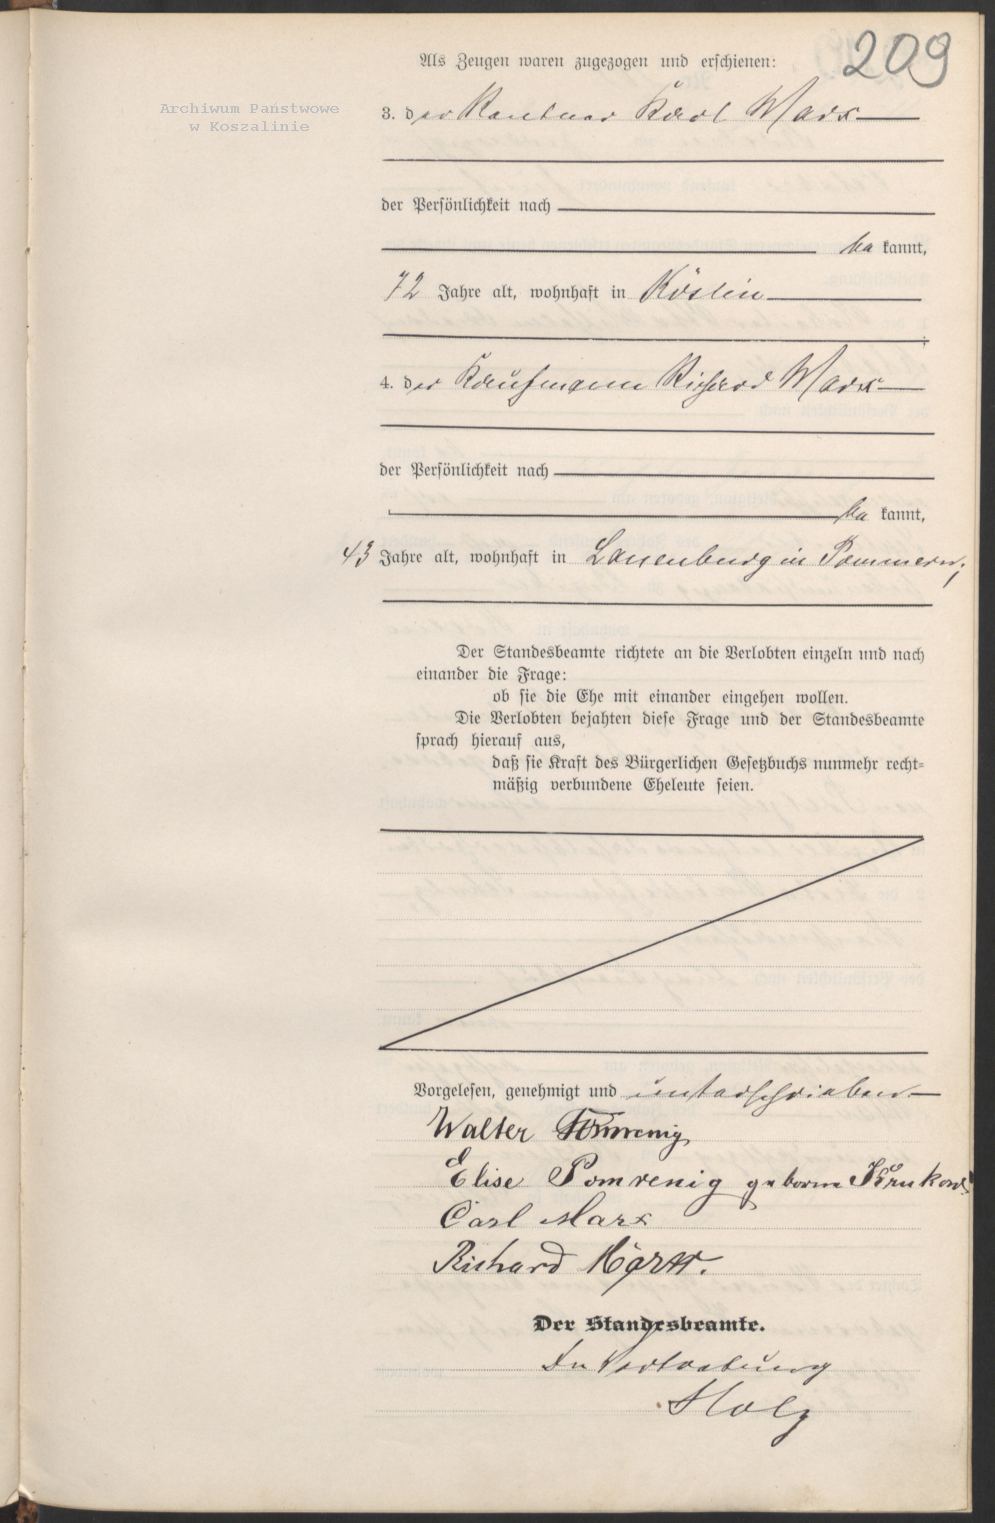 209
Als Zeugen waren zugezogen und erschienen:
Archiwum Państwowe
w Koszalinie
3. der Rentner Karl Marx
der Persönlichkeit nach
be kannt,
72 Jahre alt, wohnhaft in Köslin
4. der Kaufmann Richard Marx
der Persönlichkeit nach
be kannt,
43 Jahre alt, wohnhaft in Lauenburg in Pommern;
Der Standesbeamte richtete an die Verlobten einzeln und nach
einander die Frage:
ob sie die Ehe mit einander eingehen wollen.
Die Verlobten bejahten diese Frage und der Standesbeamte
sprach hierauf aus,
daß sie Kraft des Bürgerlichen Gesetzbuchs nunmehr recht-
mäßig verbundene Eheleute seien.
Vorgelesen, genehmigt und unterschrieben
Walter Pomrenig
Elise Pomrenig geborne Krukow
Carl Marx
Richard Marx.
Der Standesbeamte.
In Vertretung
Holz